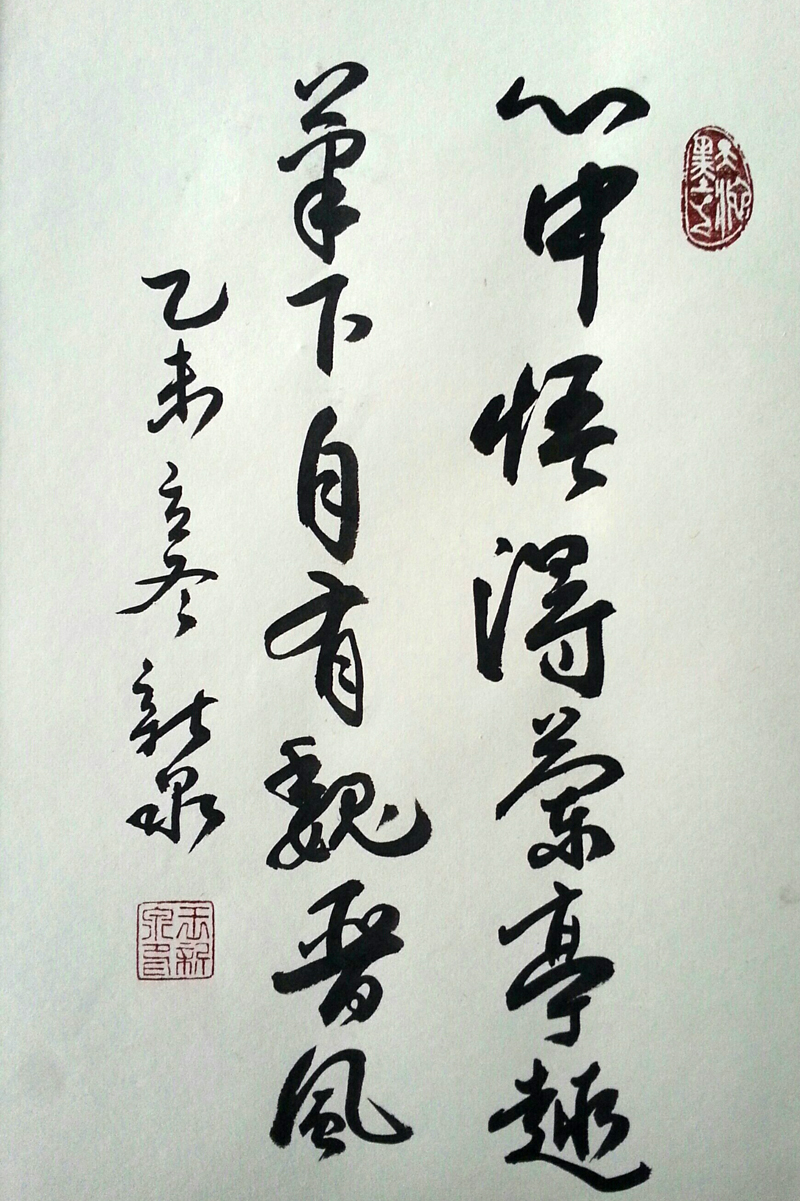 心中悟得蘭亭趣
筆下自有魏晉風
乙未立冬新泉